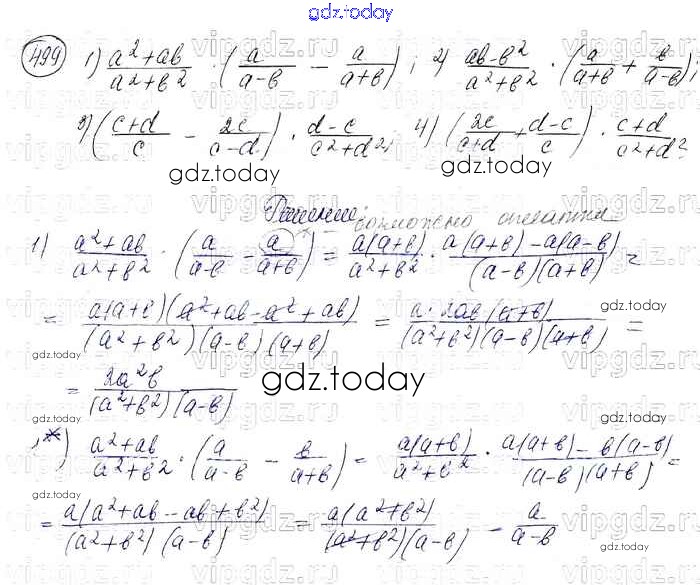 gdz.today
499 1) (a²+ab)/(a²+b²) · (a/(a-b) - a/(a+b)); 2) (ab-b²)/(a²+b²) · (a/(a+b) + b/(a-b));
3) ((c+d)/c - 2c/(c-d)) · (d-c)/(c²+d²); 4) (2c/(c+d) + (d-c)/c) · (c+d)/(c²+d²).
gdz.today gdz.today
Решение:
возможно опечатка
1) (a²+ab)/(a²+b²) · (a/(a-b) - a/(a+b)) = a(a+b)/(a²+b²) · (a(a+b)-a(a-b))/((a-b)(a+b)) =
= a(a+b)(a²+ab-a²+ab)/((a²+b²)(a-b)(a+b)) = a·2ab(a+b)/((a²+b²)(a-b)(a+b)) =
gdz.today gdz.today
= 2a²b/((a²+b²)(a-b))
gdz.today
1*) (a²+ab)/(a²+b²) · (a/(a-b) - b/(a+b)) = a(a+b)/(a²+b²) · (a(a+b)-b(a-b))/((a-b)(a+b)) =
gdz.today
= a(a²+ab-ab+b²)/((a²+b²)(a-b)) = a(a²+b²)/((a²+b²)(a-b)) = a/(a-b)
gdz.today